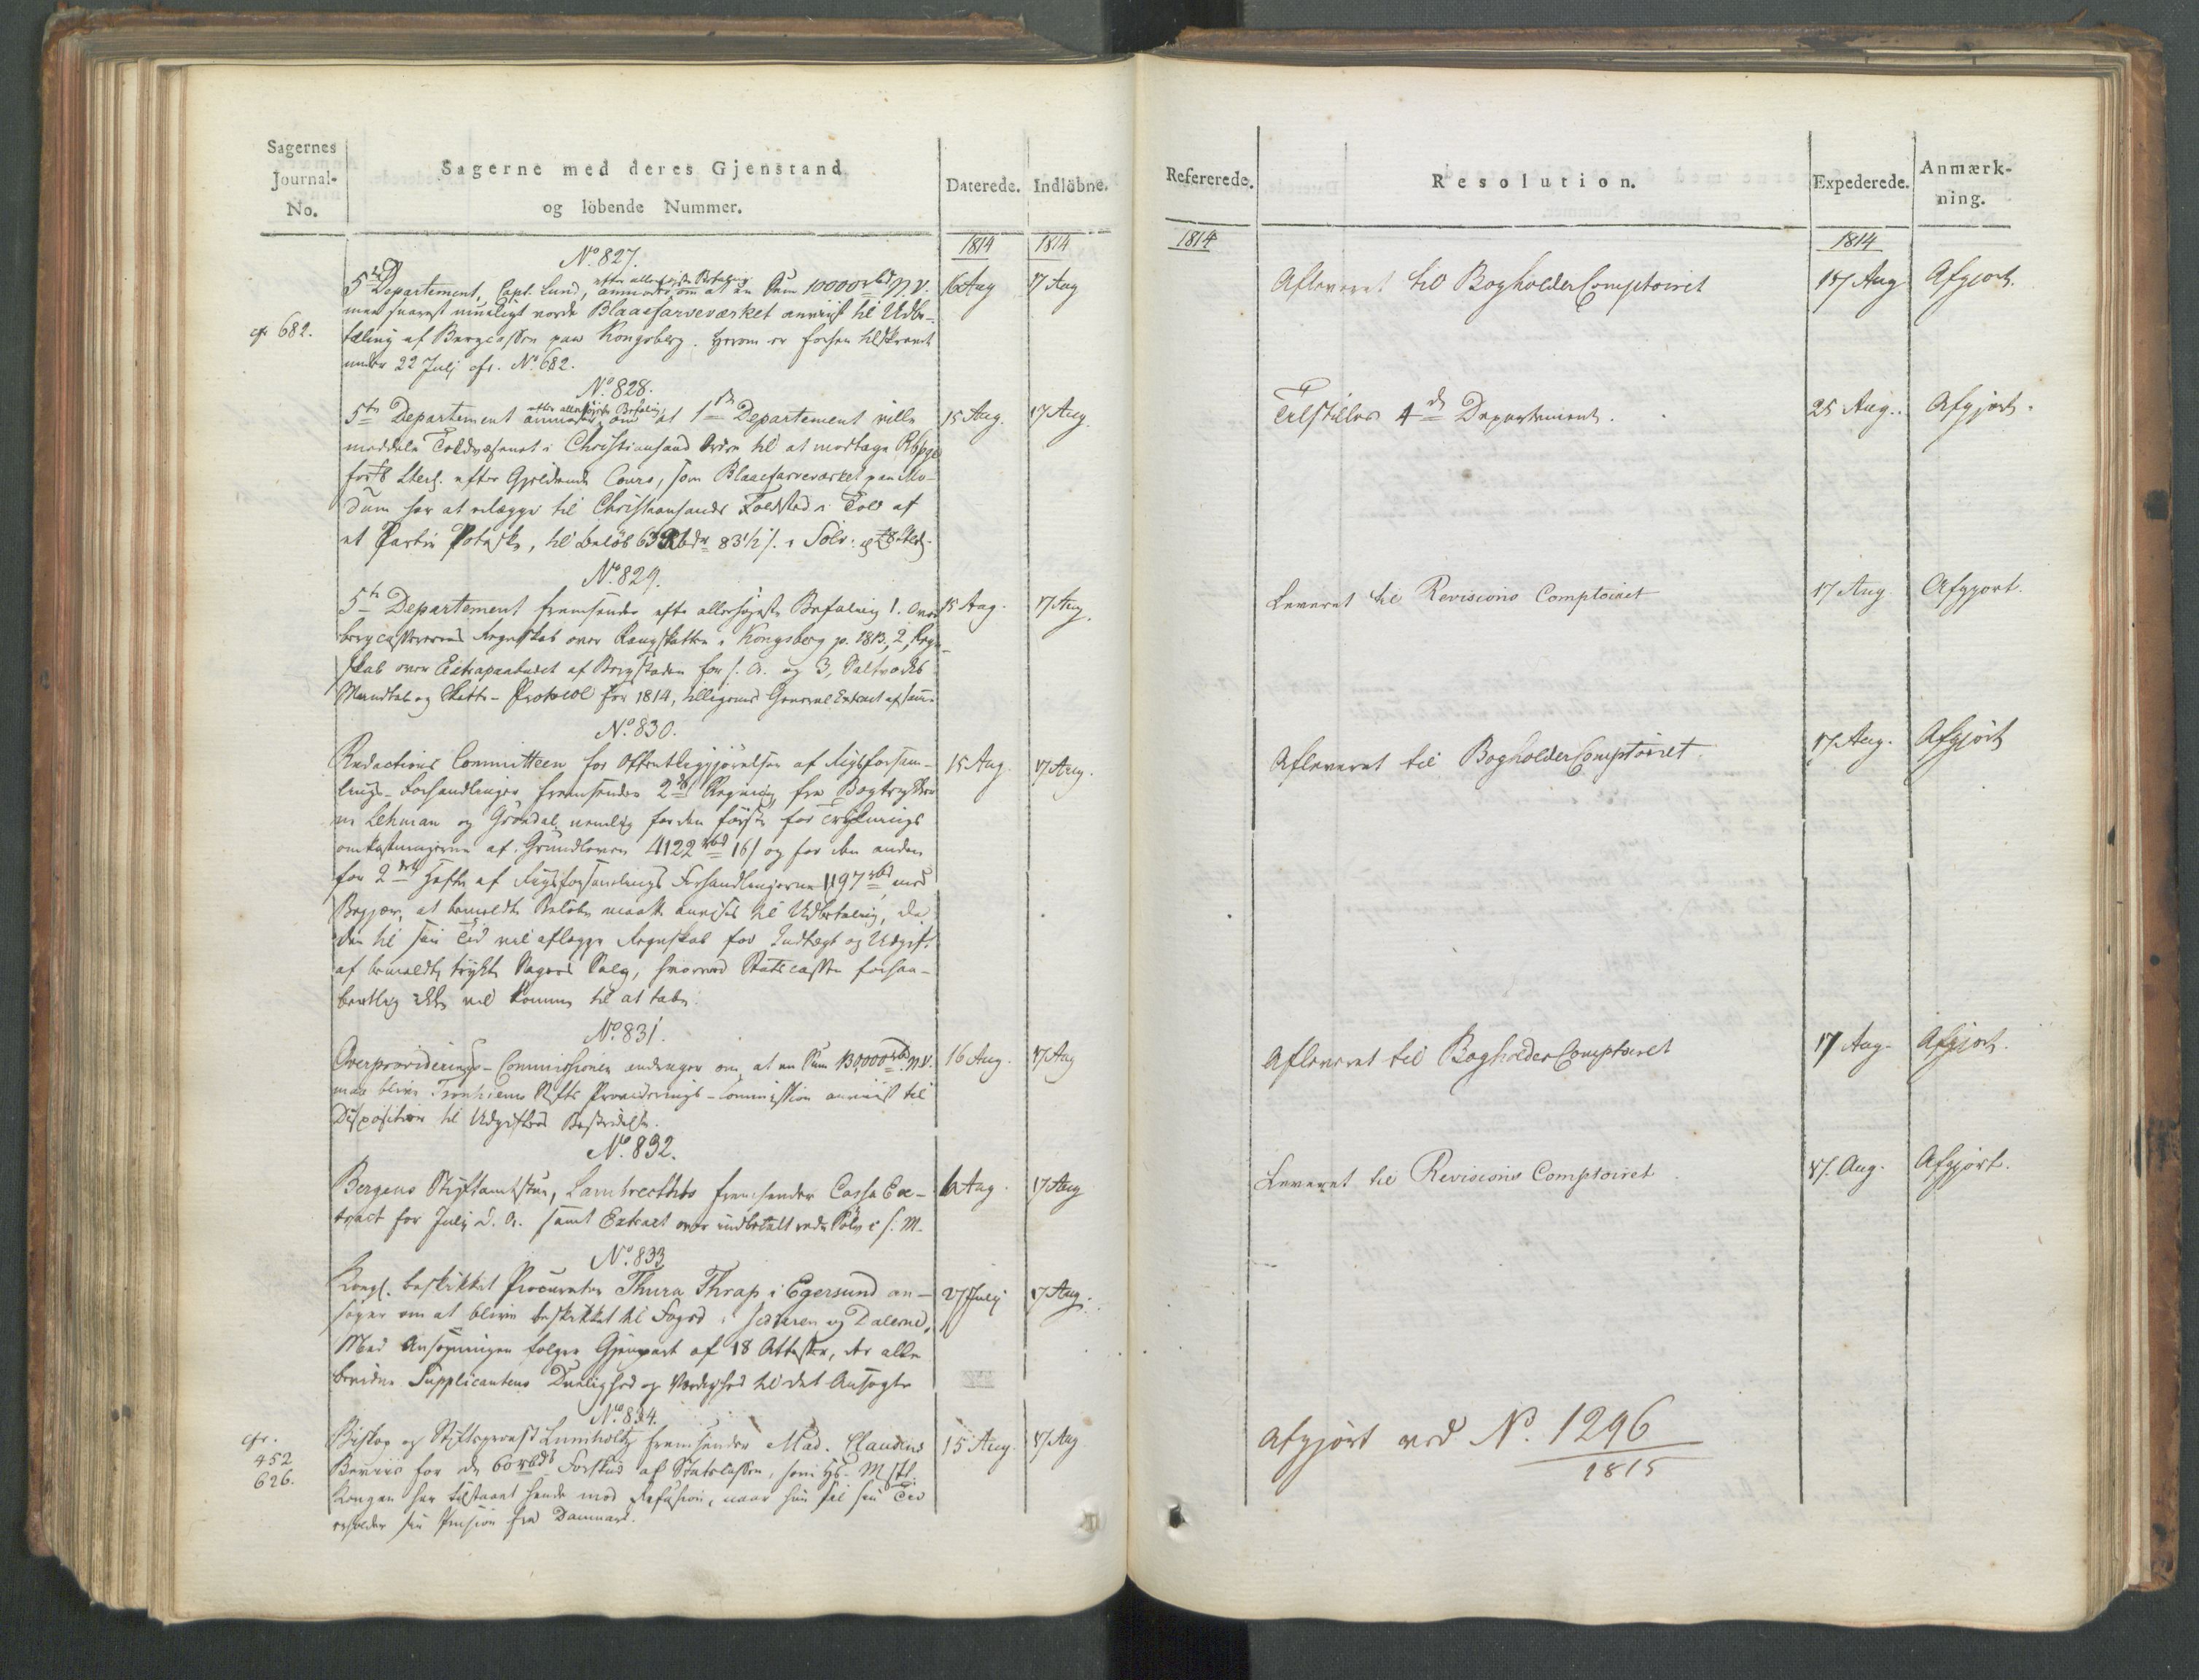 Sagernes
Journal-
No.
Sagerne med deres Gjenstand
og löbende Nummer.
Daterede.
Indlöbne.
1814
1814
No. 827.
5te Departement, Capt. Lund, efter allerhöjeste Befaling anmoder om at en Sum 10000 rbd N.V.
med snarest mueligt vorde Blaafarveværket anviist til Udbe-
cfr 682.
taling af Bergcassen paa Kongsberg. Herom er forhen tilskrevet
under 22 Julj cfr. No. 682.
16 Aug
17 Aug
No. 828.
5te Departement efter allerhöjeste Befaling anmoder om at 1ste Departement ville
meddele Toldvæsenet i Christiansand Ordre til at modtage Rbpge
for £ Sterl. efter Gjeldende Cours, som Blaafarveværket paa Mo-
dum har at erlægge til Christiansands Toldsted i Told af
et Partie Potaske, til Beløb 63 Rbdr 83 1/2 s. i Sölv
15 Aug.
17 Aug.
No. 829.
5te Departement fremsender efter allerhøjeste Befaling 1. Over
bergcasserens Regnskab over Rangskatten i Kongsberg p. 1813, 2, Regn-
skab over Extrapaabudet af Bergstaden for s. A. og 3, Saltværks
Mandtal og Skatte-Protocol for 1814, tilligemed General Extract af samme
15 Aug.
17 Aug.
No. 830.
Redactions Committeen for Offentliggjörelsen af Rigsforsam-
lings-Forhandlinger fremsender 2de Regning fra Bogtrykker
ne Lehman og Gröndal, nemlig for den förste for Tryknings
omkostningerne af Grundloven 4122 rbd 16 s og for den anden
for 2det Hefte af Rigsforsamlings Forhandlingerne 1197 rbd med
Begjær, at bemeldte Beløb maatte anvises til Udbetaling, da
den til sin Tid vil aflægge Regnskab for Indtægt og Udgift
af bemeldte trykte Sagers Salg, hvorved Statscassen forhaa-
bentlig ikke vil komme til at tabe.
15 Aug.
17 Aug.
No. 831.
Overproviderings-Commissionen andrager om, at en Sum 130,000 rbd N.V.
maa blive Tronhiems Stifts Provideringscommission anviist til
Disposition til Udgifters Bestridelse.
16 Aug.
17 Aug
No. 832.
Bergens Stiftamtstue, Lambrechts fremsender Cassa Ex-
tract for July d. A. samt Extract over indbetalt rede Sölv i s. M.
6 Aug.
17 Aug
No. 833
Kongl. beskikket Procurator Thura Thrap i Egersund an-
søger om at blive beskikket til Foged i Jedderen og Dalerne.
Med Ansøgningen følger Gjenpart af 18 Attester, der alle
bevidne Supplicantens Duelighed og Værdighed til det Ansøgte
27 July
17 Aug.
No. 834.
cfr.
452
626.
Biskop og Stiftsprovst Lumholtz fremsender Mad. Claudius
Beviis for de 60 rbd Forskud af Statscassen, som Hs. Mjst.
Kongen har tilstaaet hende mod Refusion, naar hun til sin Tid
erholder sin Pension fra Danmark.
15 Aug.
17 Aug
Refererede.
Resolution.
Expederede.
Anmærk-
ning.
1814
1814
Afleveret til BogholderComptoiret
17 Aug
Afgjort.
Tilstilles 4de Departement.
25 Aug.
Afgjort.
Leveret til Revisions Comptoiret
17 Aug
Afgjort.
Afleveret til BogholderComptoiret.
17 Aug.
Afgjort
Afleveret til BogholderComptoiret
17 Aug.
Afgjort.
Leveret til Revisions Comptoiret
17. Aug.
Afgjort.
Afgjort ved No. 1296
1815